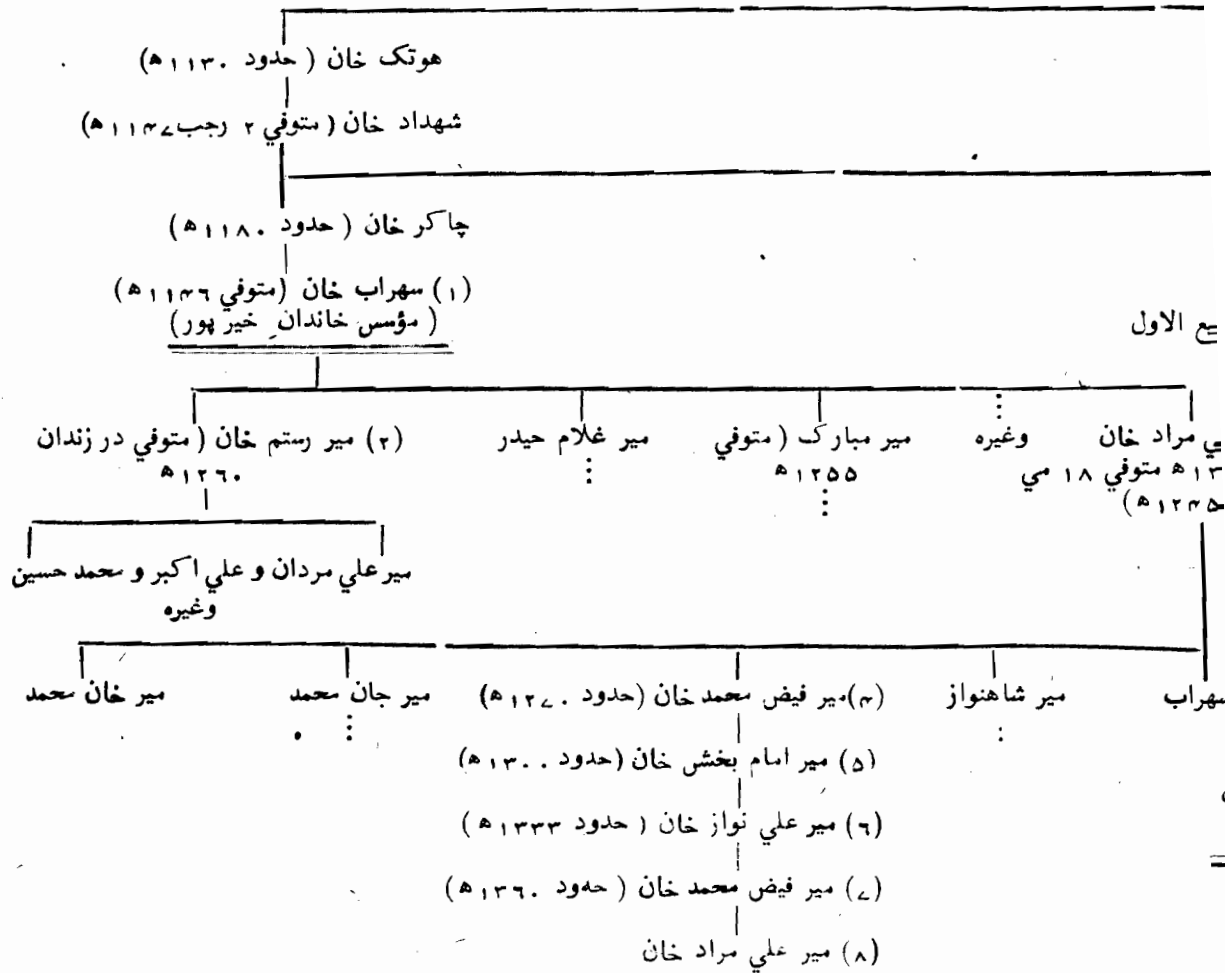 هوتک خان ( حدود ۱۱۳۰ھ)
شهداد خان ( متوفي ۲ رجب ۱۱۴۷ھ)
چاکر خان ( حدود ۱۱۸۰ھ)
(۱) سهراب خان (متوفي ۱۱۴٦ھ)
( مؤسس خاندان ِ خير پور)
يع الاول
(۲) مير رستم خان ( متوفي در زندان
۱۲٦۰ھ
مير غلام حيدر
مير مبارک ( متوفي
۱۲۵۵ھ
وغيره
ي مراد خان
۱۳ھ متوفي ۱۸ مي
۱۲۴۵ھ)
مير علي مردان و علي اکبر و محمد حسين
وغيره
سهراب
مير شاهنواز
(۴) مير فيض محمد خان (حدود ۱۲۷۰ھ)
مير جان محمد
مير خان محمد
(۵) مير امام بخش خان (حدود ۱۳۰۰ھ)
(٦) مير علي نواز خان ( حدود ۱۳۳۳ھ)
(۷) مير فيض محمد خان ( حدود ۱۳٦۰ھ)
(۸) مير علي مراد خان